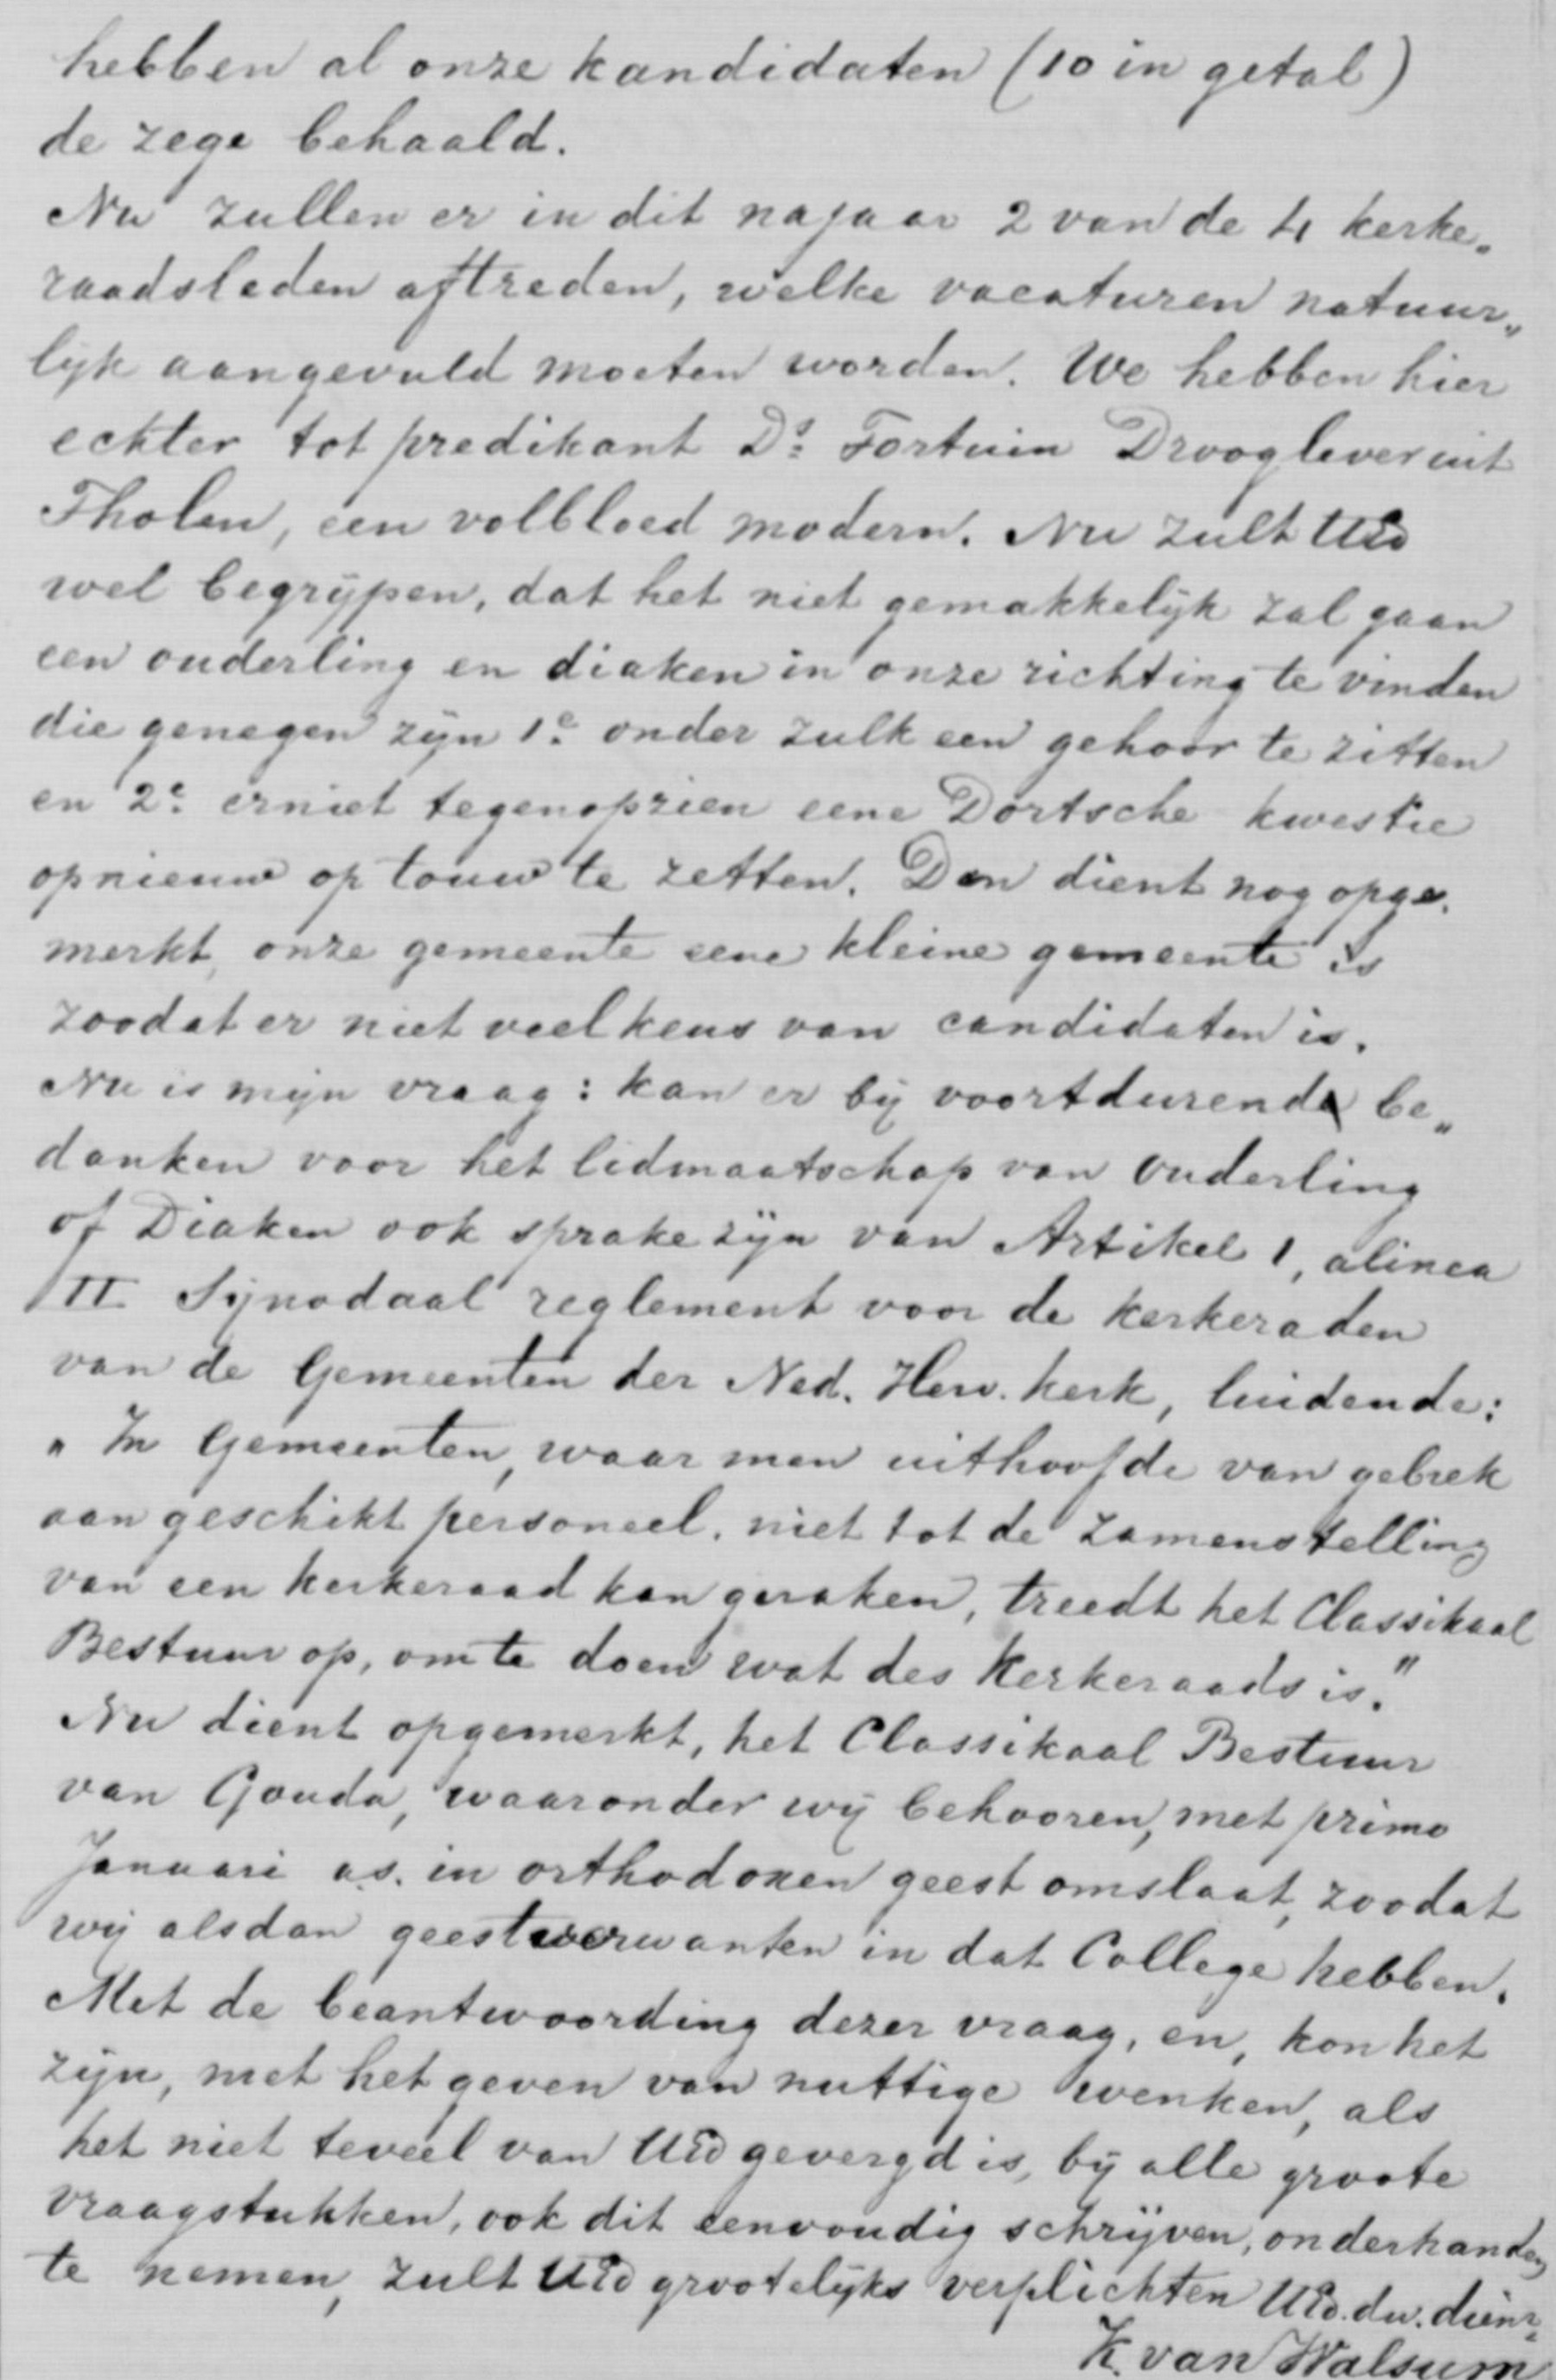 hebben al onze kandidaten (10 in getal)
de zege behaald.
Nu zullen er in dit najaar 2 van de 4 kerke„
raadsleden aftreden, welke vacaturen natuur„
lijk aangevuld moeten worden. We hebben hier
echter tot predikant Ds. Fortuin Drooglever uit
Tholen, een volbloed modern. Nu zult UEd
wel begrijpen, dat het niet gemakkelijk zal gaan
een ouderling en diaken in onze richting te vinden
die genegen zijn 1e. onder zulk een gehoor te zitten
en 2e. er niet tegenopzien eene Dortsche kwestie
opnieuw op touw te zetten. Dan dient nog opge„
merkt, onze gemeente eene kleine gemeente is
zoodat er niet veel keus van candidaten is.
Nu is mijn vraag: kan er bij voortdurend be„
danken voor het lidmaatschap van Ouderling
of Diaken ook sprake zijn van Artikel 1, alinea
II Synodaal reglement voor de kerkeraden
van de Gemeenten der Ned. Herv. kerk, luidende:
„In Gemeenten, waar men uithoofde van gebrek
aan geschikt personeel, niet tot de zamenstelling
van een kerkeraad kan geraken, treedt het Classikaal
Bestuur op, om te doen wat des Kerkeraads is."
Nu dient opgemerkt, het Classikaal Bestuur
van Gouda, waaronder wij behooren, met primo
Januari a.s. in orthodoxen geest omslaat, zoodat
wij alsdan geestverwanten in dat College hebben.
Met de beantwoording dezer vraag, en, kon het
zijn, met het geven van nuttige wenken, als
het niet teveel van UEd gevergd is, bij alle groote
vraagstukken, ook dit eenvoudig schrijven, onderhanden
te nemen, zult UEd grootelijks verplichten UEd. dw. dienr.
K. van Walsum